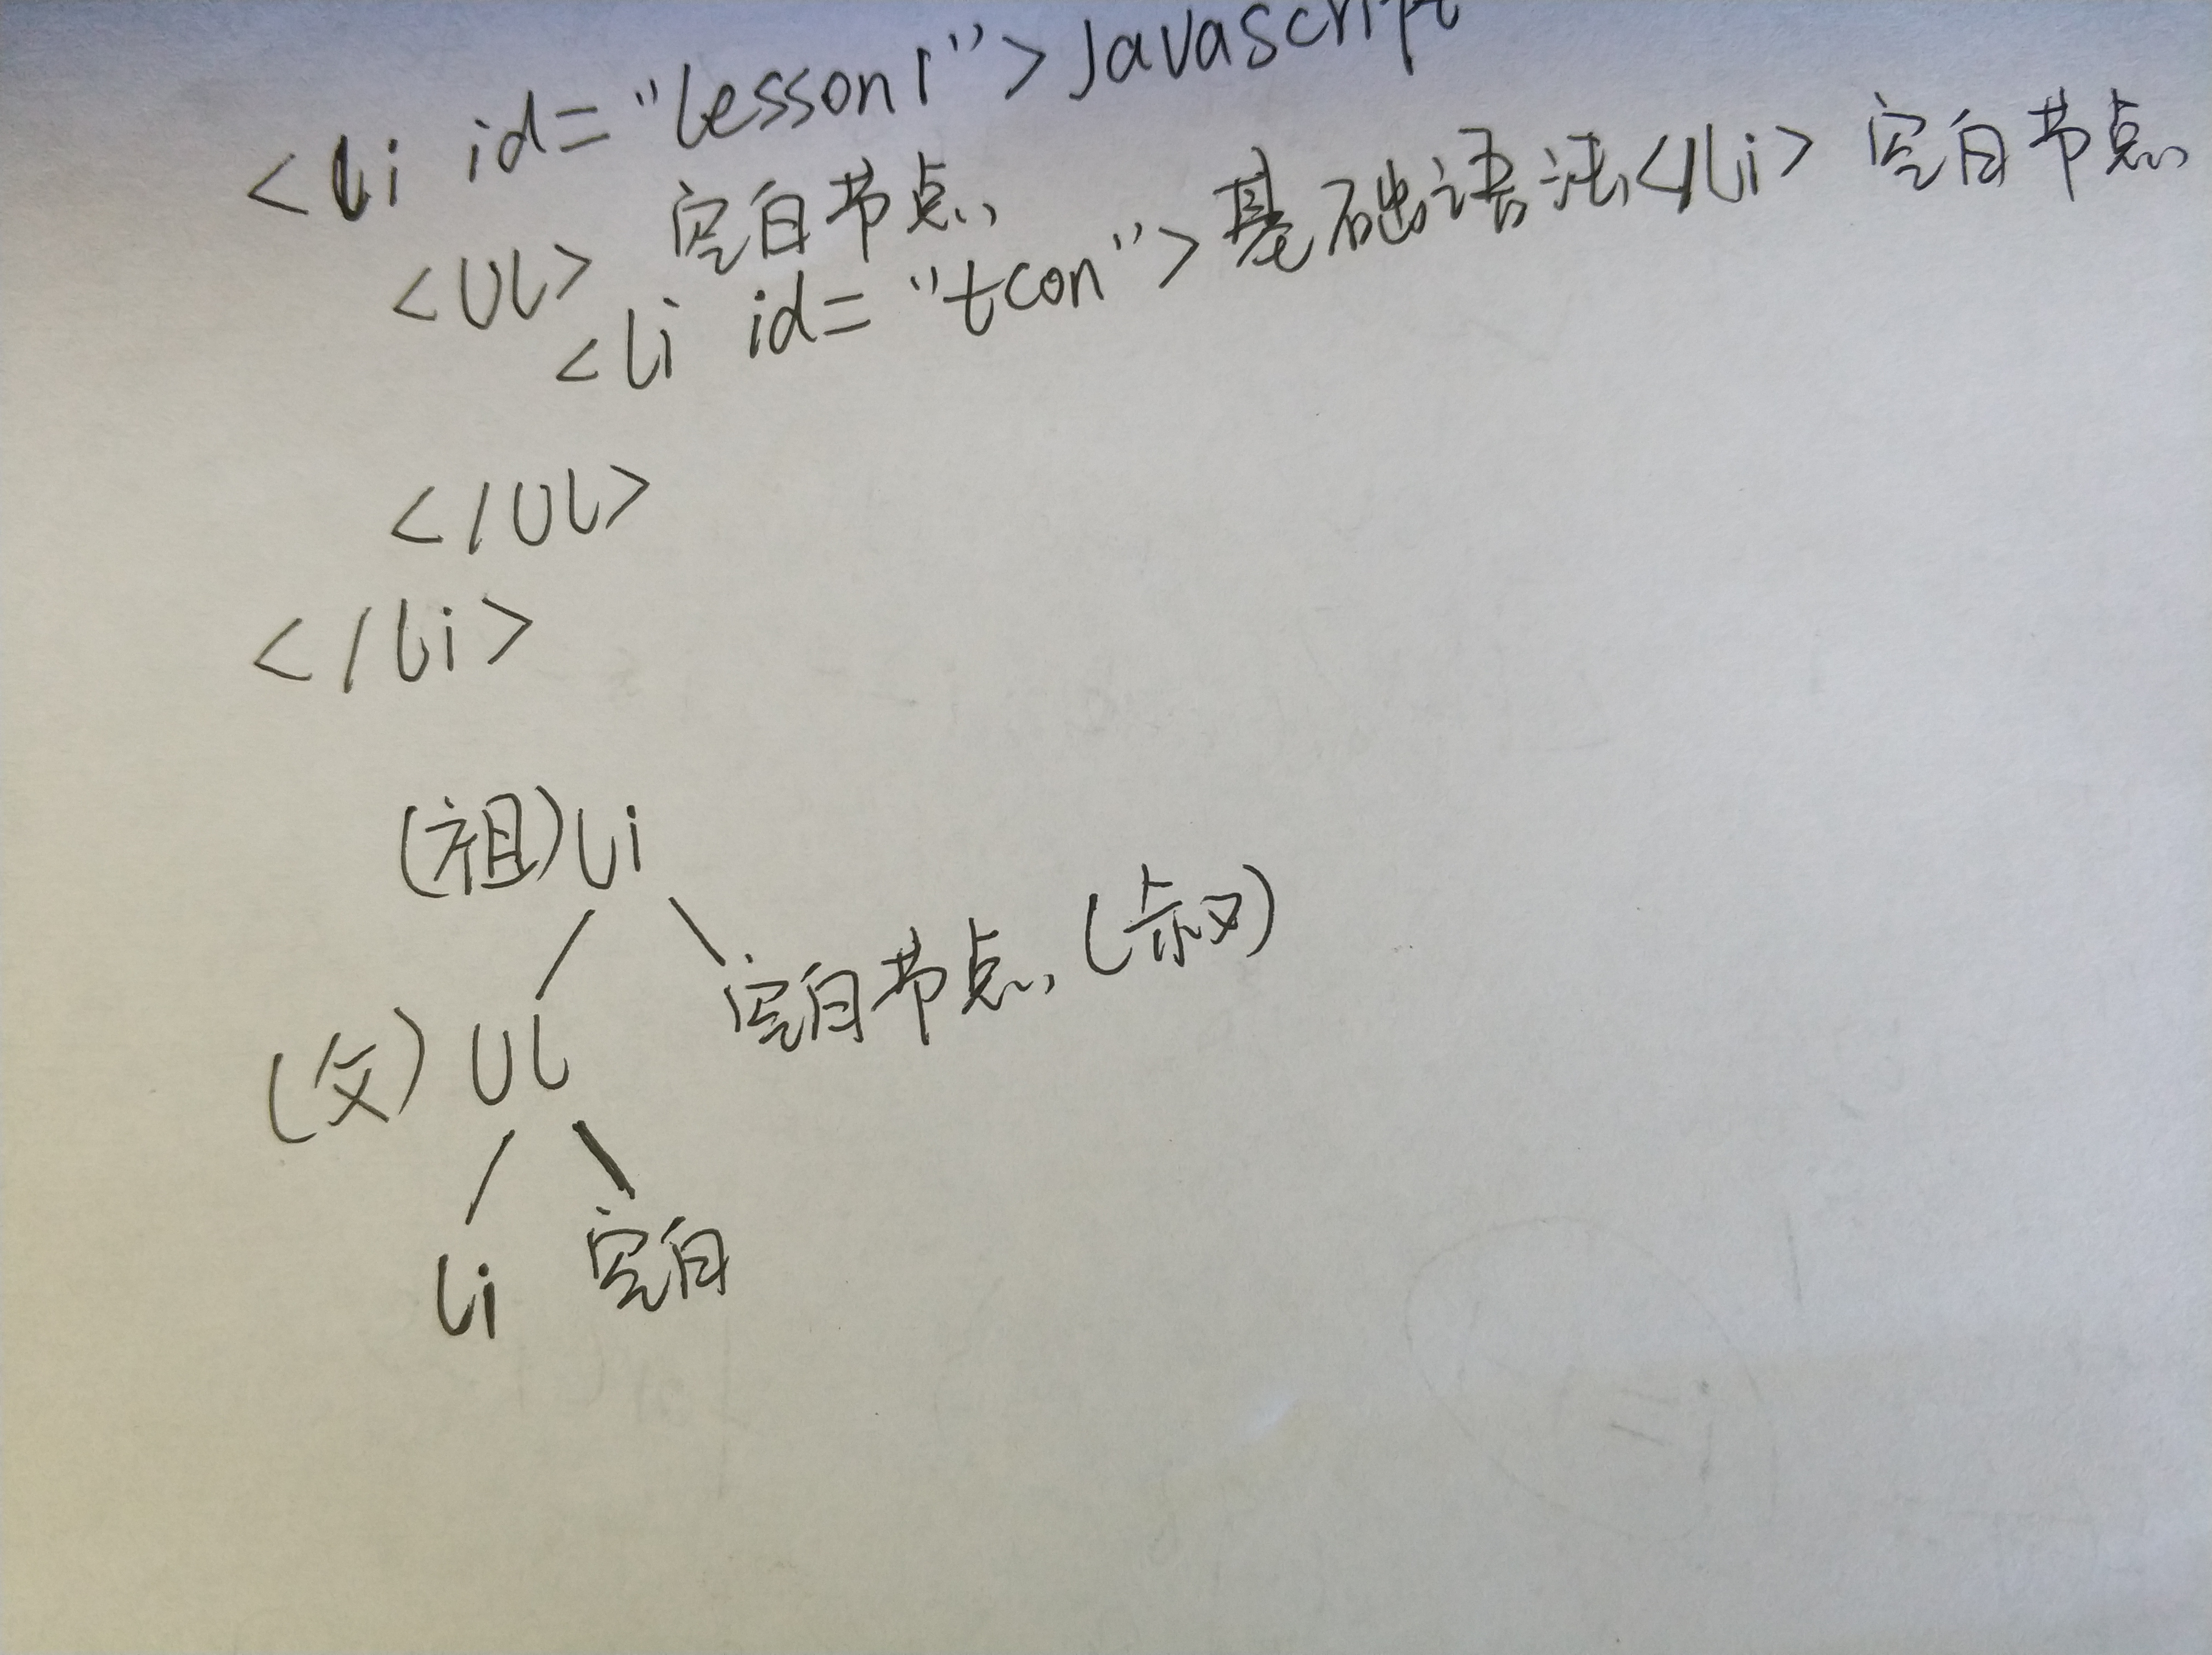 <li id="lesson1">Javascript
<UL> 空白节点
<li id="tcon">基础语法</li> 空白节点
</UL>
</li>
(祖)li
空白节点(叔)
(父)UL
空白
li